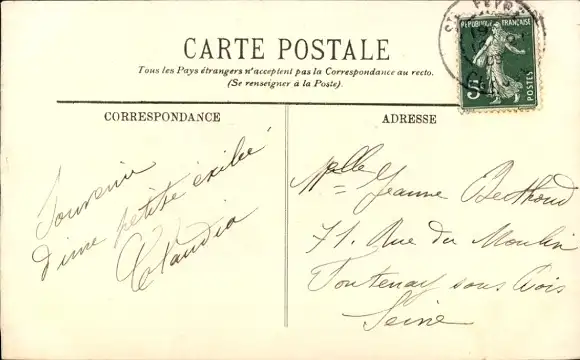 CARTE POSTALE
Tous les Pays étrangers n'acceptent pas la Correspondance au recto.
(Se renseigner à la Poste).
CORRESPONDANCE
ADRESSE
REPUBLIQUE FRANÇAISE
5
POSTES
09
Souvenir
d'une petite exilée
Claudia
Melle Jeanne Berthoud
71. Rue du Moulin
Fontenay sous Bois
Seine